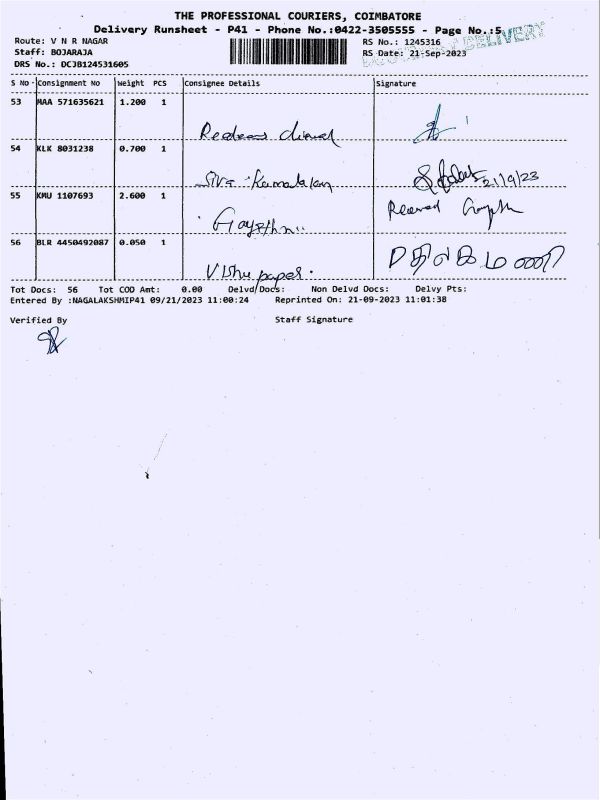 THE PROFESSIONAL COURIERS, COIMBATORE
Delivery Runsheet - P41 - Phone No.:0422-3505555 - Page No.:5
DELIVERY
Route: V N R NAGAR RS No.: 1245316
Staff: BOJARAJA RS Date: 21-Sep-2023
DRS No.: DCJB124531605
S No Consignment No Weight PCS Consignee Details Signature
53 MAA 571635621 1.200 1
54 KLK 8031238 0.700 1
Siva Kamalakan 21/9/23
55 KMU 1107693 2.600 1 Received
Gayathri
56 BLR 4450492087 0.050 1
Vishu paper.
Tot Docs: 56 Tot COD Amt: 0.00 Delvd/Docs: Non Delvd Docs: Delvy Pts:
Entered By :NAGALAKSHMIP41 09/21/2023 11:00:24 Reprinted On: 21-09-2023 11:01:38
Verified By Staff Signature